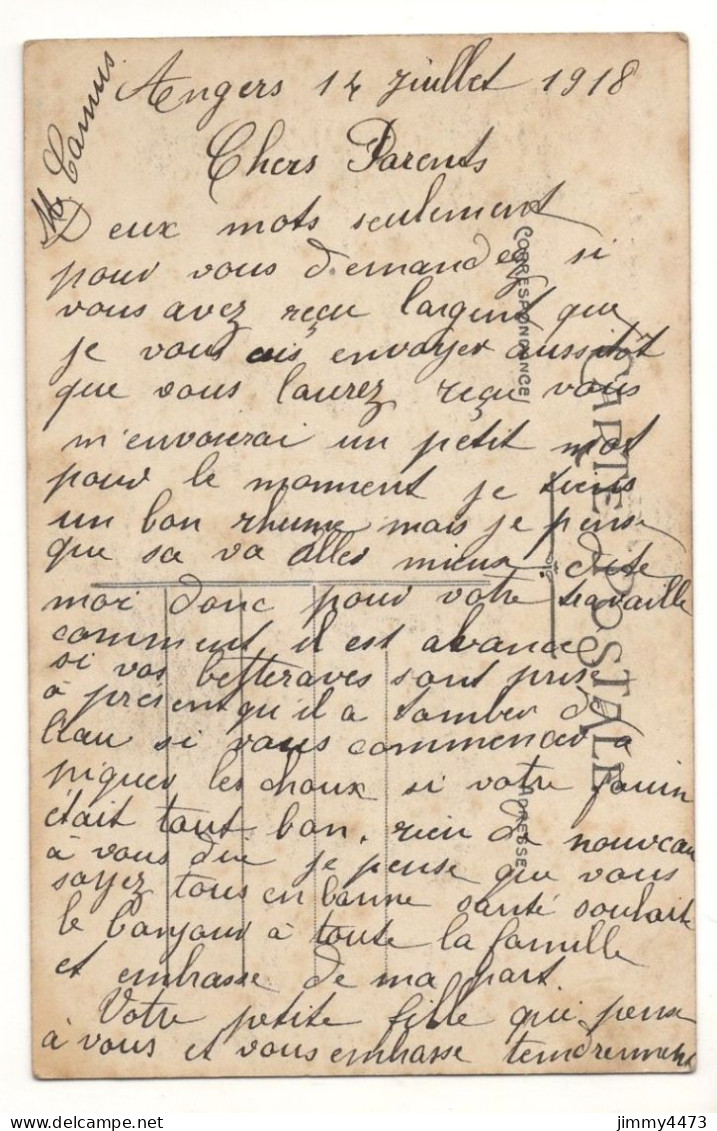 Angers 14 Juillet 1918
Camus
Chers Parents
Deux mots seulement
pour vous demandez si
vous avez reçu largent que
je vous ais envoyer aussitôt
que vous laurez reçu vous
m'envourai un petit mot
pour le monment je tiens
un bon rhume mais je pense
que sa va aller mieux dite
moi donc pour votre travaille
comment il est avance
si vos betteraves sont prise
à présent qu'il a tomber de
leau si vous commencer a
piquer les choux si votre fouin
était tout bon. rien de nouveau
à vous dire je pense que vous
soyez tous en bonne santé souhaite
le bonjour à toute la famille
et embrasse de ma part.
Votre petite fille qui pense
à vous et vous embrasse tendrement
CARTE POSTALE
CORRESPONDANCE
ADRESSE
jimmy4473